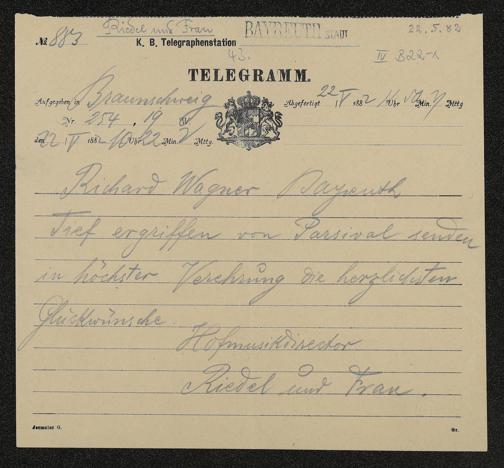 Riedel und Frau BAYREUTH STADT 22.5.82
№ 883 K. B. Telegraphenstation 43. IV B22-1
TELEGRAMM.
Aufgegeben in Braunschweig Abgefertigt 22 V 188 2 11 Uhr Min. Mttg
Nr. 254. 19 W.
den 22 / V 188 2 10 Uhr 22 Min. V Mttg.
Richard Wagner Bayreuth
Tief ergriffen von Parsival senden
in höchster Verehrung die herzlichsten
Glückwünsche.
Hofmusikdirector
Riedel und Frau.